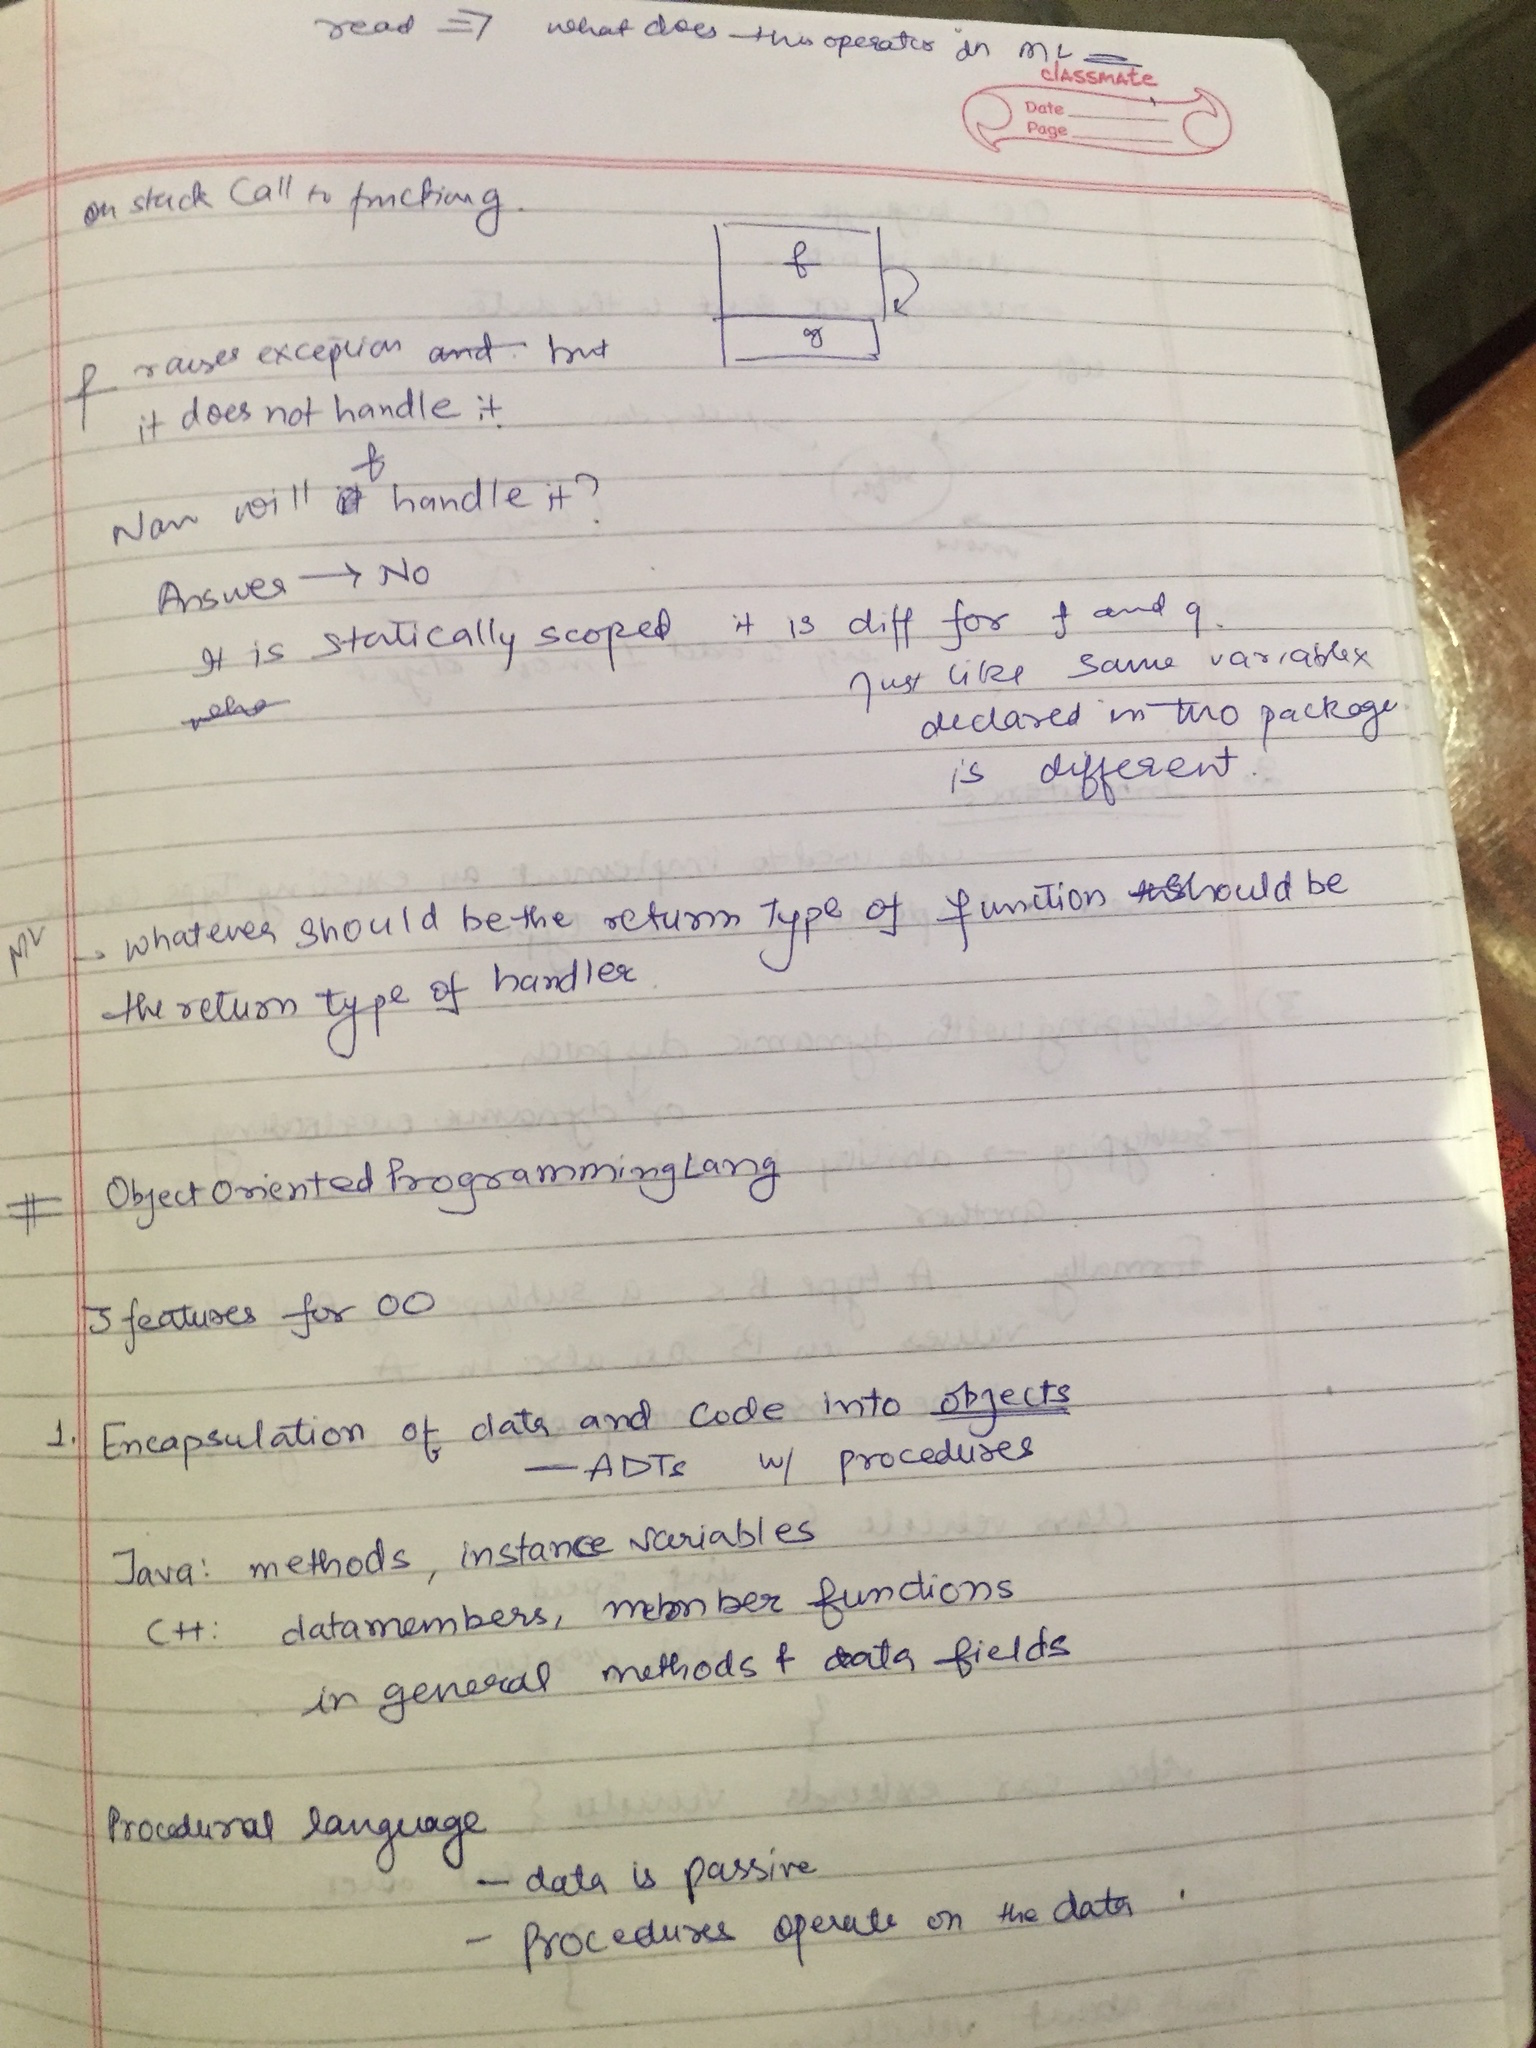 read => what does this operator in ML
classmate
Date
Page
on stack call to function g.
f
g
f raises exception and but
it does not handle it
f
Now will it handle it?
Answer → No
It is statically scoped it is diff for f and g.
just like same variables
declared in two package
is different.
ML → whatever should be the return type of function should be
the return type of handler
# Object Oriented Programming Lang
3 features for OO
1. Encapsulation of data and code into objects
— ADTs w/ procedures
Java: methods, instance variables
C++: datamembers, member functions
in general methods & data fields
Procedural language
- data is passive
- Procedures operate on the data.